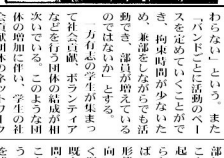 わらない」という。また
「バンドごとに活動のペー
スを決めていくことがで
き、拘束時間が少ないた
め、兼部をしながらでも活
動でき、部員が増えている
のではないか」とする。
一方有志の学生が集まっ
て社会貢献、ボランティア
などを行う団体の結成が相
次いでいる。このような団
体の増加に伴い、学生の社
会貢献団体のネットワーク